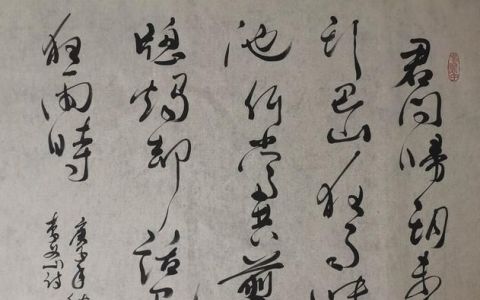 君問歸期未
期巴山夜雨漲
池何當共剪
窓燭却話巴
夜雨時
庚子年
李商隱詩